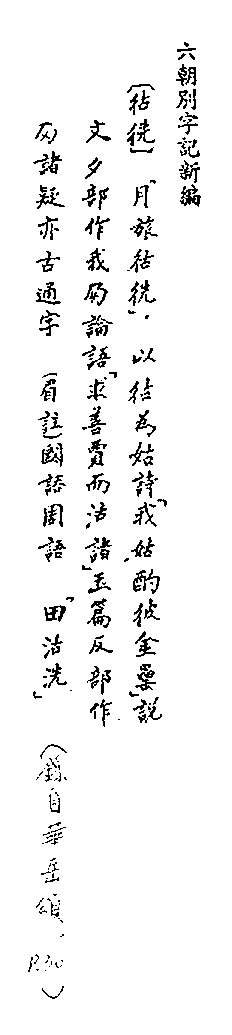 六朝別字記新編
〔秙〕「月旅秙」，以秙為姑詩「我姑酌彼金罍」說
文夕部作我夃論語「求善賈而沽諸」玉篇反部作
夃諸疑亦古通字 〔眉註〕國語周語「田沽洗」 （錄自華岳頌，P.30）